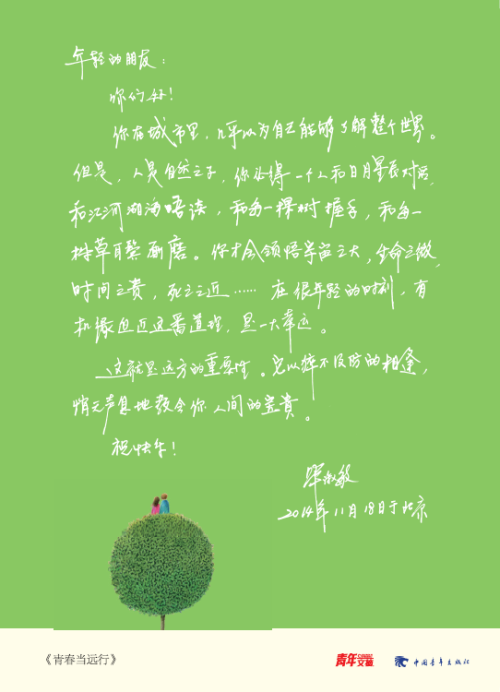 年轻的朋友：
你们好！
你在城市里，几乎以为自己能够了解整个世界。
但是，人是自然之子，你必得一个人和日月星辰对话，
和江河湖海晤谈，和每一棵树握手，和每一
株草耳鬓厮磨。你才会领悟宇宙之大，生命之微，
时间之贵，死之近……在很年轻的时刻，有
机缘逼近这番道理，是一大幸运。
这就是远方的重要性。它以猝不及防的相逢，
悄无声息地教会你人间的宝贵。
祝快乐！
毕淑敏
2014年11月18日于北京
《青春当远行》
青年文摘
中国青年出版社